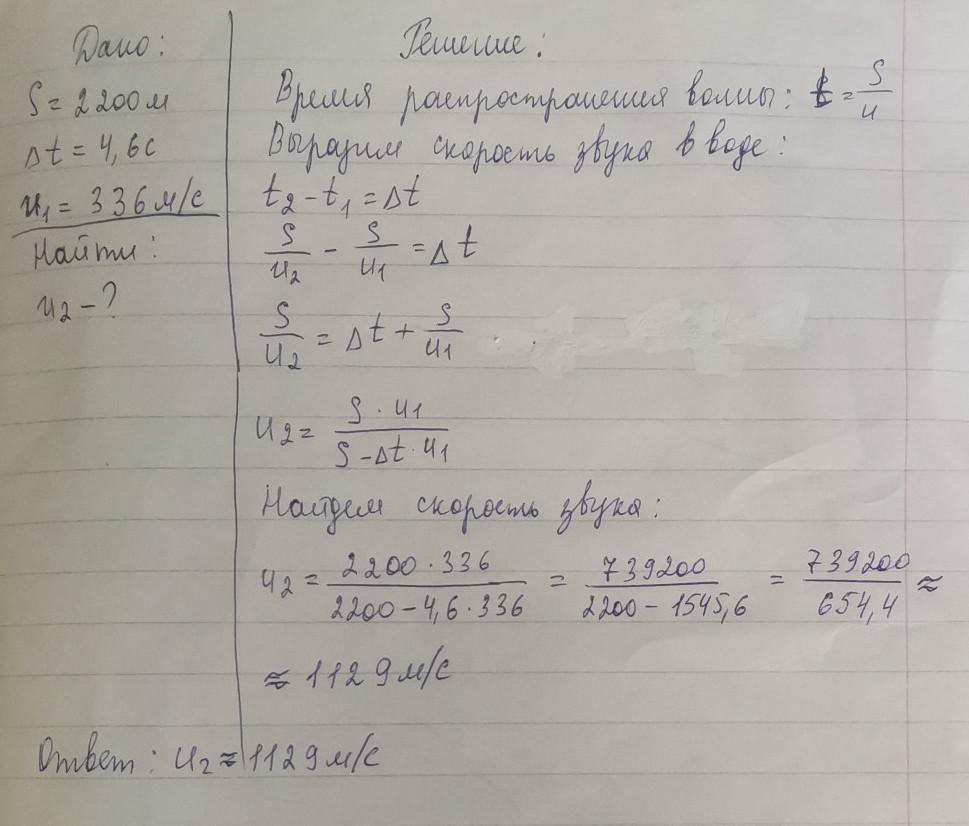 Дано:
S = 2200 м
Δt = 4,6 с
u₁ = 336 м/с
Найти:
u₂ - ?
Решение:
Время распространения волны: t = S/u
Выразим скорость звука в воде:
t₂ - t₁ = Δt
S/u₂ - S/u₁ = Δt
S/u₂ = Δt + S/u₁
u₂ = S · u₁ / S - Δt · u₁
Найдем скорость звука:
u₂ = 2200 · 336 / 2200 - 4,6 · 336 = 739200 / 2200 - 1545,6 = 739200 / 654,4 ≈
≈ 1129 м/с
Ответ: u₂ ≈ 1129 м/с